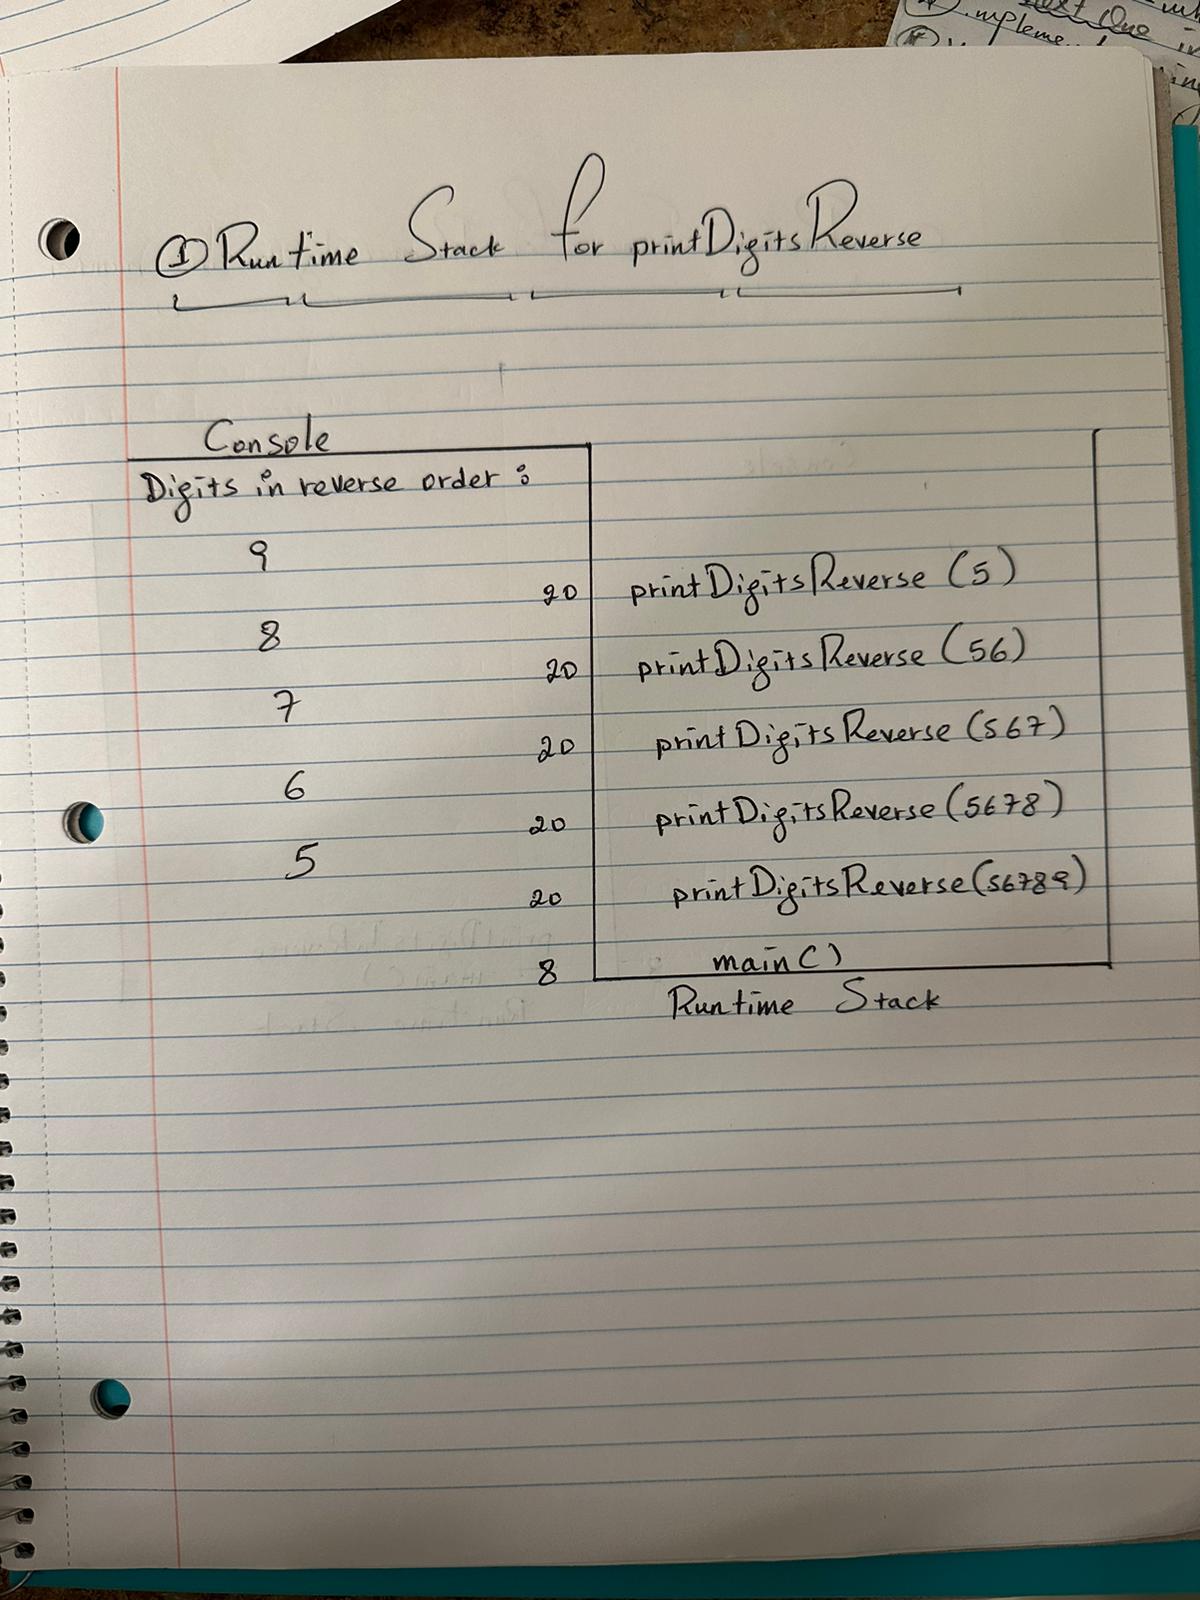 ① Runtime Stack for printDigitsReverse
Console
Digits in reverse order :
9
20 printDigitsReverse (5)
8
20 printDigitsReverse (56)
7
20 printDigitsReverse (567)
6
20 printDigitsReverse (5678)
5
20 printDigitsReverse (56789)
8 main()
Runtime Stack